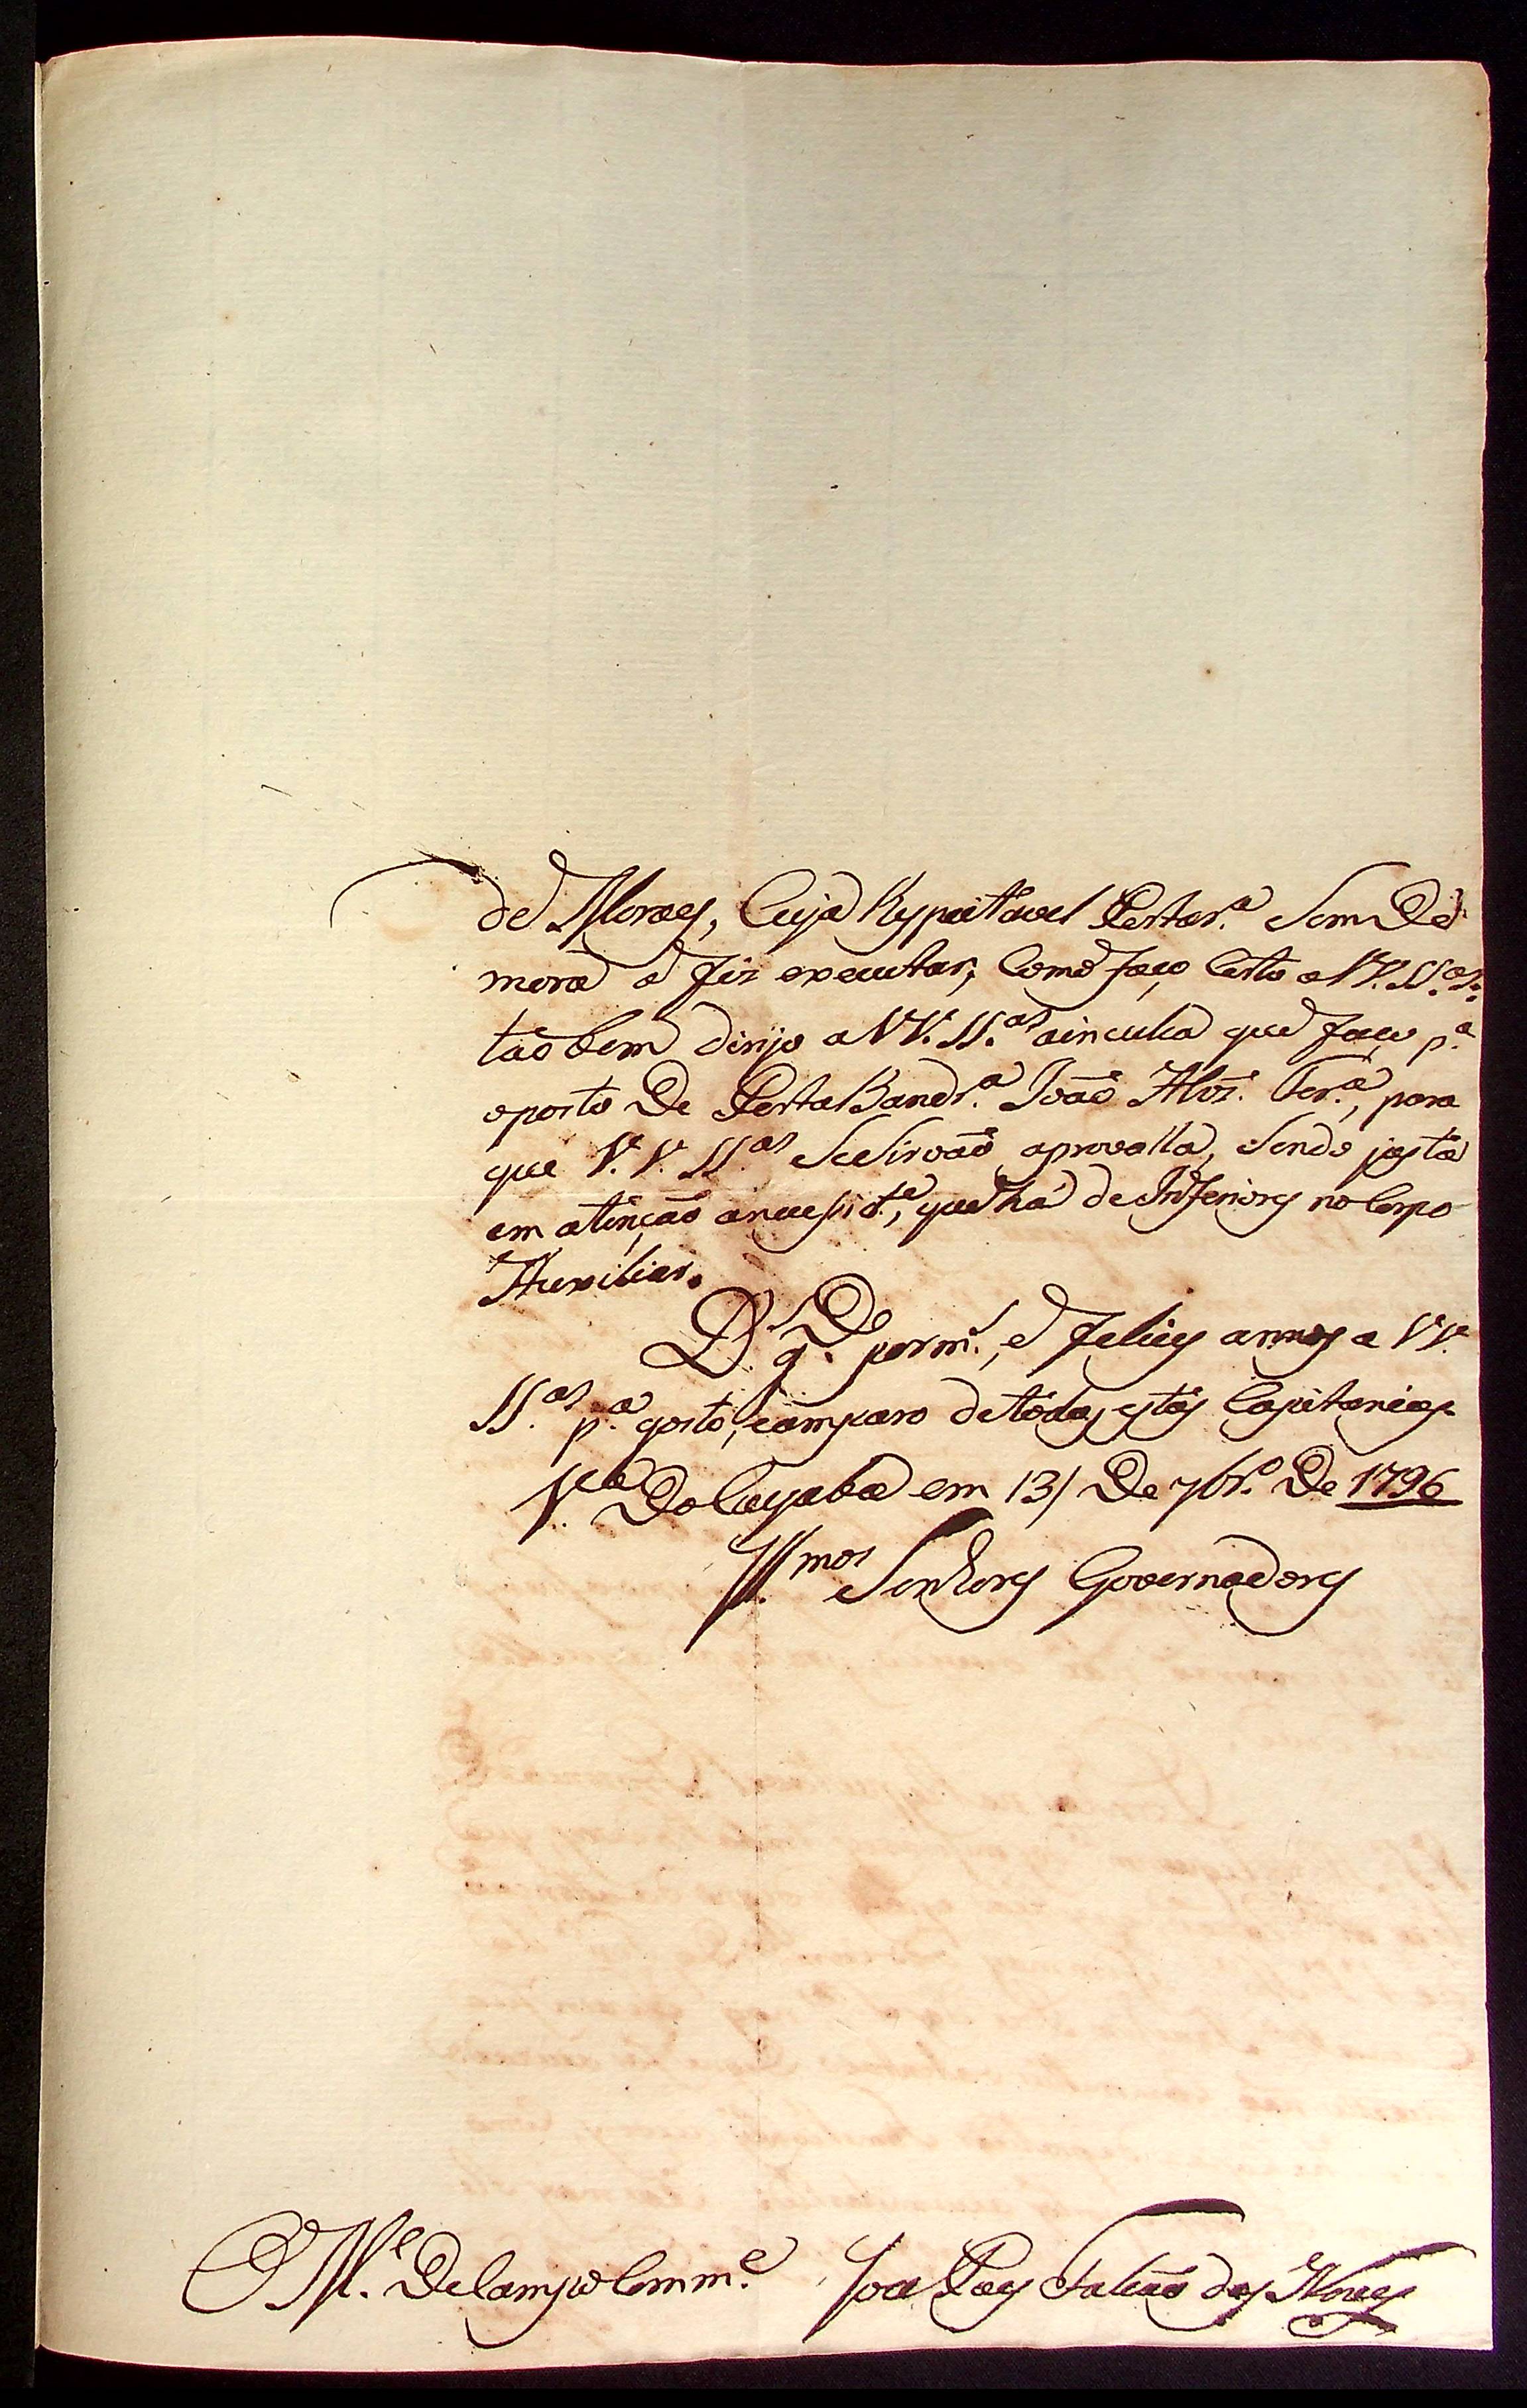 de Moraes, cuja Respeitavel Portar.ª Sem De
mora a fiz executar, como faço certo a VV. SS.as
tão bem dirijo a VV. SS.as ainculca que faço p.ª
oposto De PortaBandr.ª João Alvz. Ferr.ª, para
que V. V. SS.as SeSirvão aprovalla, Sendo justa
em atenção anecessid.e, que há deInferiores noCorpo
Auxiliar.
D.s g.De por m.s, e felices annos a VV.
SS.as p.ª gosto, eamparo detodas estas Capitanias
V.ª DoCuyabá em 13/ De 7br.º De 1796
Ill.mos Senhores Governadores
O M.e DeCampo Comm.e Joze Paes Falcão das Neves